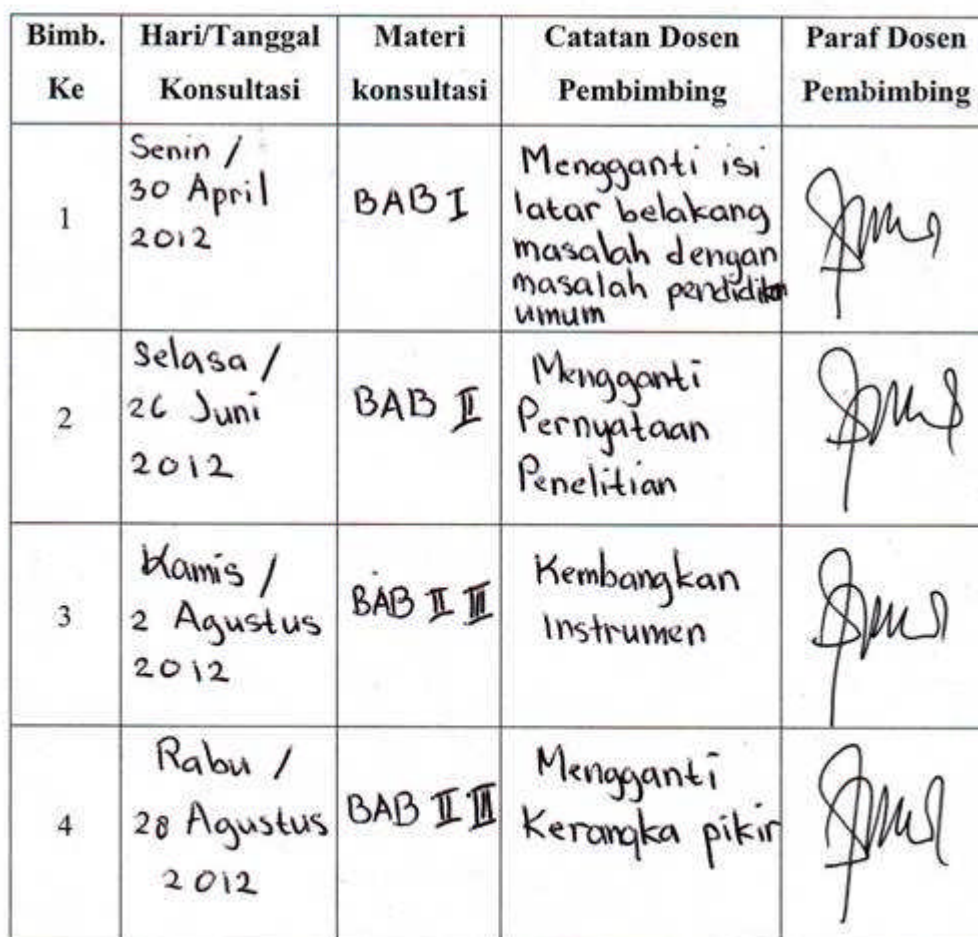 Bimb. Ke
Hari/Tanggal Konsultasi
Materi konsultasi
Catatan Dosen Pembimbing
Paraf Dosen Pembimbing
1
Senin /
30 April
2012
BAB I
Mengganti isi
latar belakang
masalah dengan
masalah pendidikan
umum
2
Selasa /
26 Juni
2012
BAB II
Mengganti
Pernyataan
Penelitian
3
Kamis /
2 Agustus
2012
BAB II III
Kembangkan
Instrumen
4
Rabu /
28 Agustus
2012
BAB II III
Mengganti
Kerangka pikir